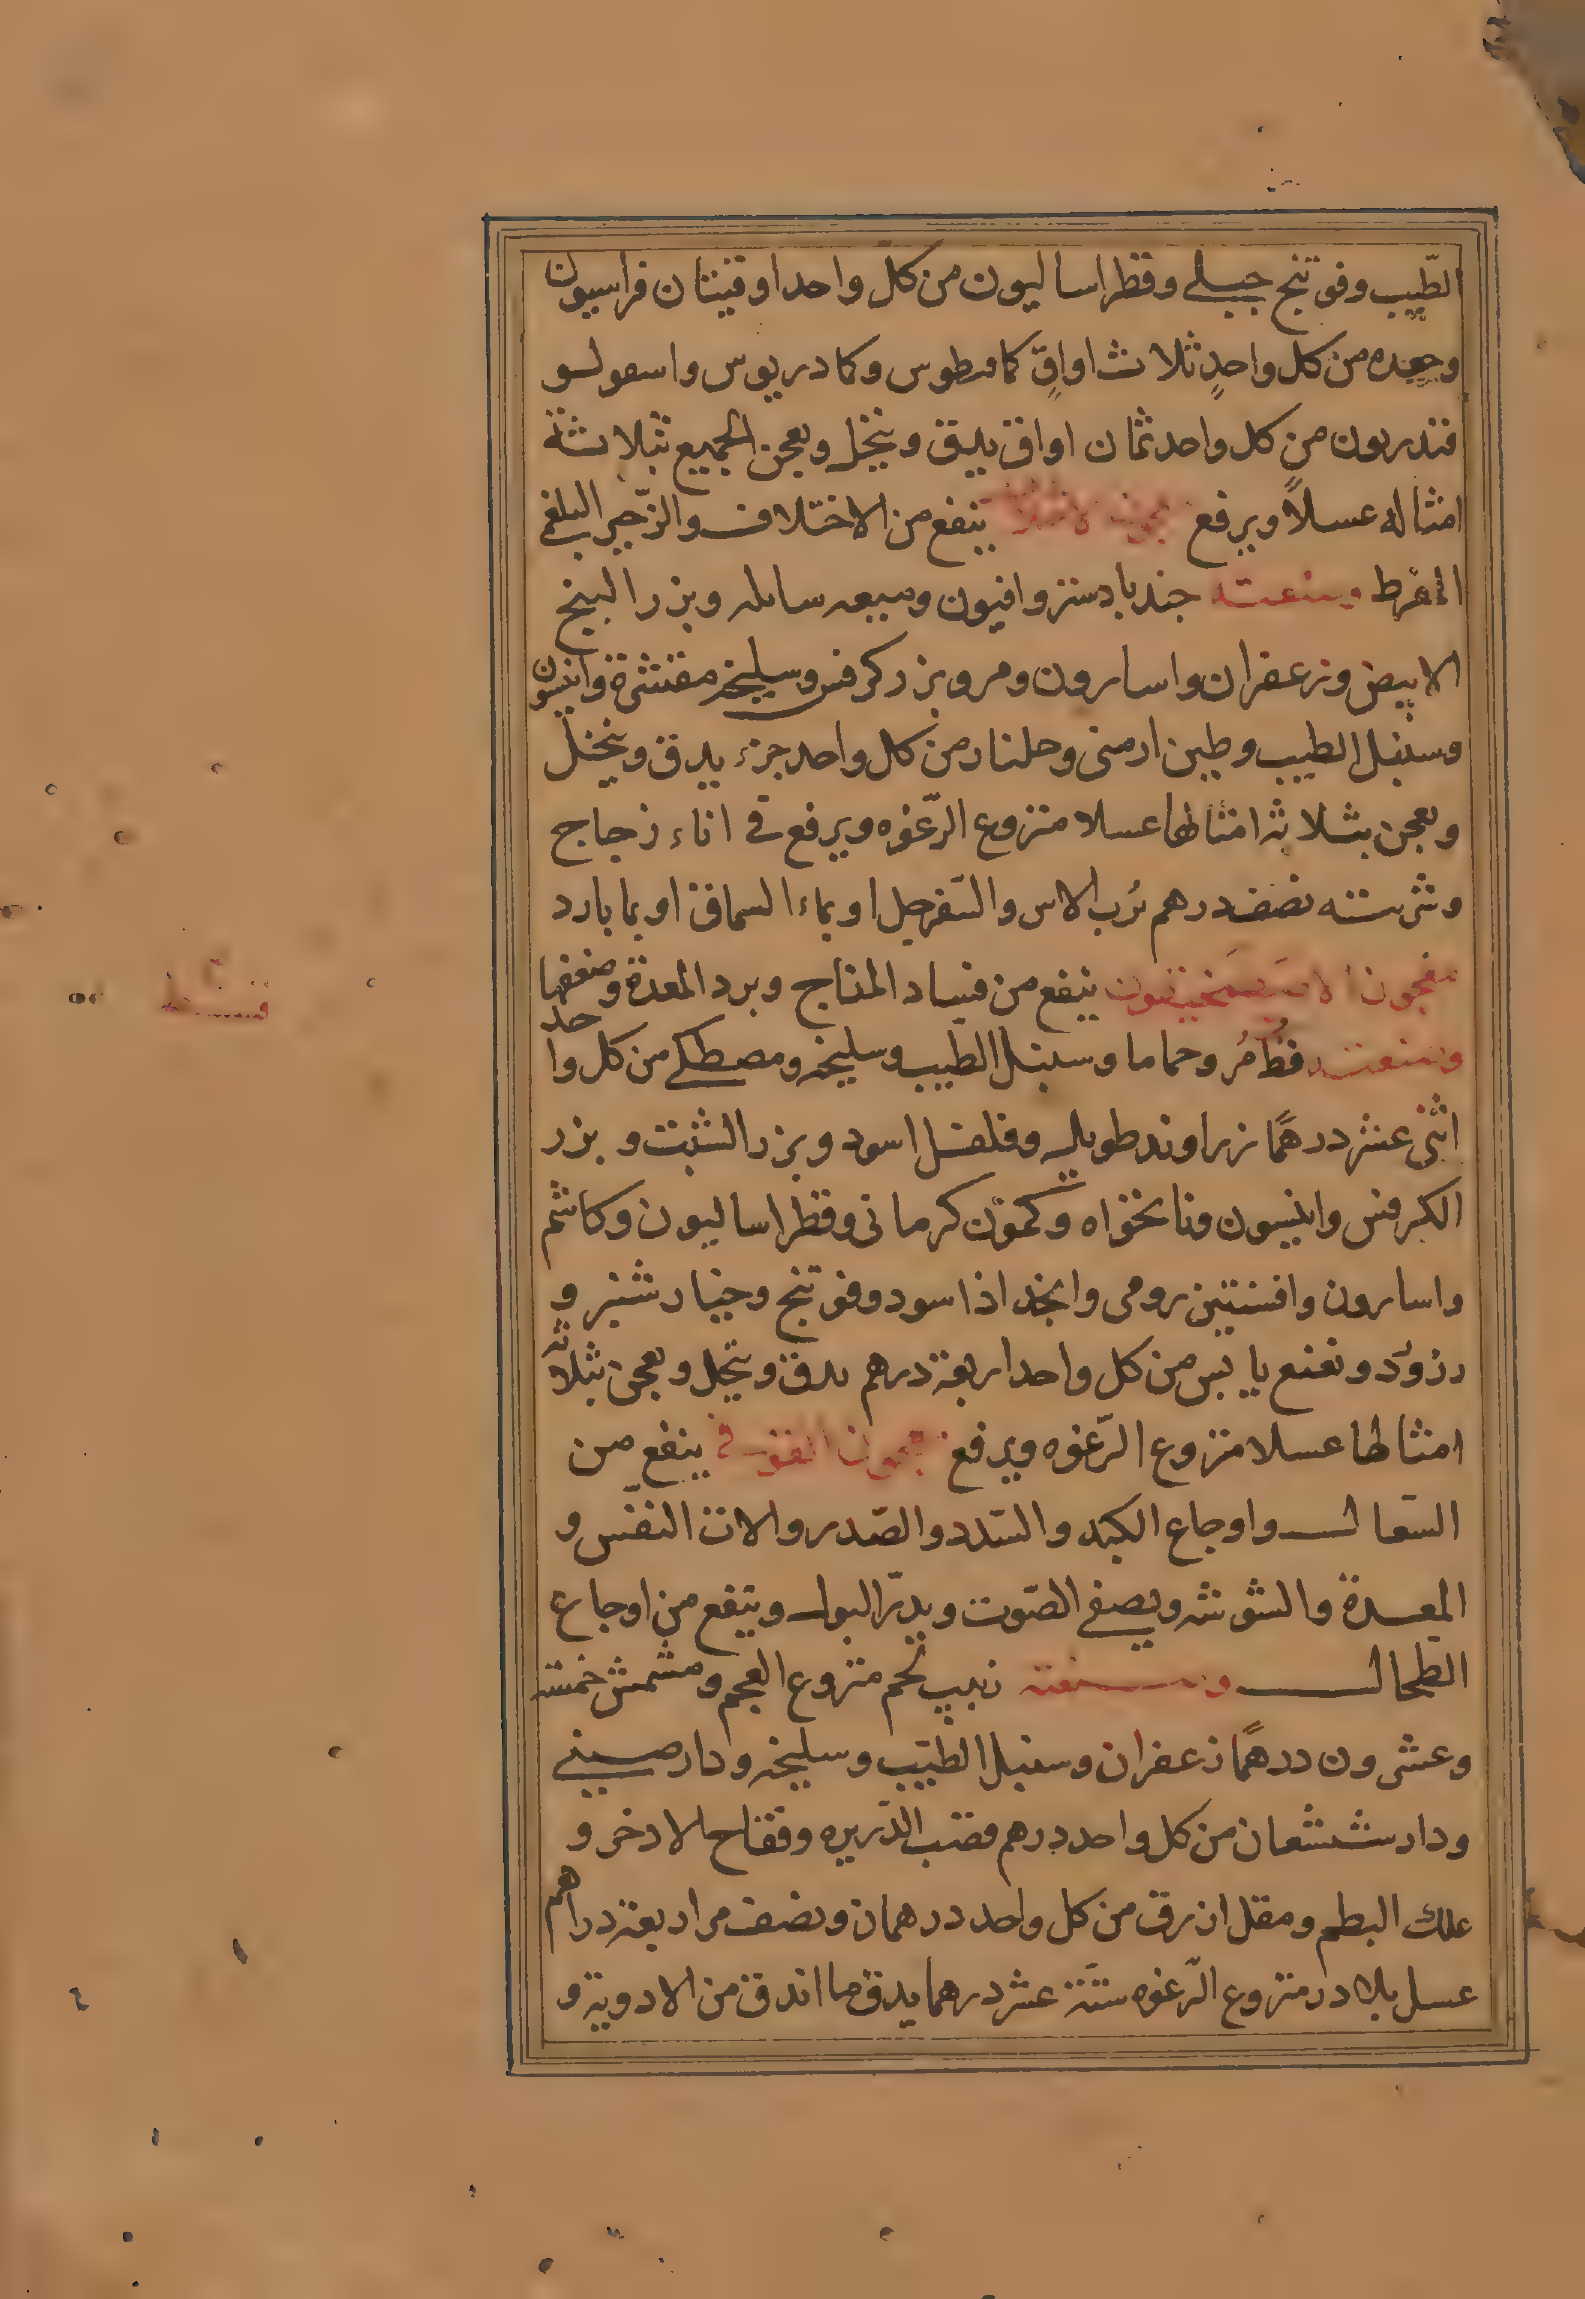 الطّيب وفوتنج جبلي وفطراساليون من كل واحد اوقيتان فراسيون
وجعده من كل واحدٍ ثلاث اواقٍ كامىطوس وكمادريوس واسقولو
قندريون من كل واحد ثمان اواق يدق وينخل ويعجن الجميع بثلاثة
امثاله عسلاً ويرفع معجون ينفع من الاختلاف والزّحير البلغمي
المفرط وصنعته جندبادستر وافيون وميعه سايله وبزر البنج
الابيض وزعفران واسارون ومر وبزر كرفس وسليخه مقشرة وانيسون
وسنبل الطيب وطين ارمنى وجلنار من كل واحد جزء يدق وينخل
ويعجن بثلاثه امثالها عسلا منزوع الرّغوه ويرفع فى اناء زجاج
وشربته نصف درهم برُب الاس والسّفرجل او بماء السماق او بما بارد
معجون ينفع من فساد المزاج وبرد المعدة وضعفها
وصنعته قُط مُر وحماما وسنبل الطيب وسليخه ومصطكى من كل واحد
اثنى عشر درهمًا زراوند طويل وفلفل اسود وبزر الشبت وبزر
الكرفس وانيسون ونانخواه وكمون كرمانى وفطراساليون وكاشم
واسارون وافسنتين رومى وانجذاذ اسود وفوتنج وخيارشنبر و
رزوَد ونعنع يابس من كل واحد اربعة درهم يدق وينخل ويعجن بثلاثه
امثالها عسلا منزوع الرّغوه ويرفع معجون ينفع من
السّعال واوجاع الكبد والسّدد والصّدر والات النفّس و
المعدة والشوشه ويصفى الصّوت ويدرّ البول وينفع من اوجاع
الطّحال وصنعته زبيب لحم منزوع العجم ومشمش خمسّه
وعشرون درهمًا زعفران وسنبل الطيّب وسليخه ودارصينى
ودارشيشعان من كل واحد درهم قصب الذّريره وفقاح الادخر و
علك البطم ومقل ازرق من كل واحد درهمان ونصف مر اربعة دراهم
عسل بلادر منزوع الرّغوه ستّة عشر درهما يدق ما اندق من الادوية و